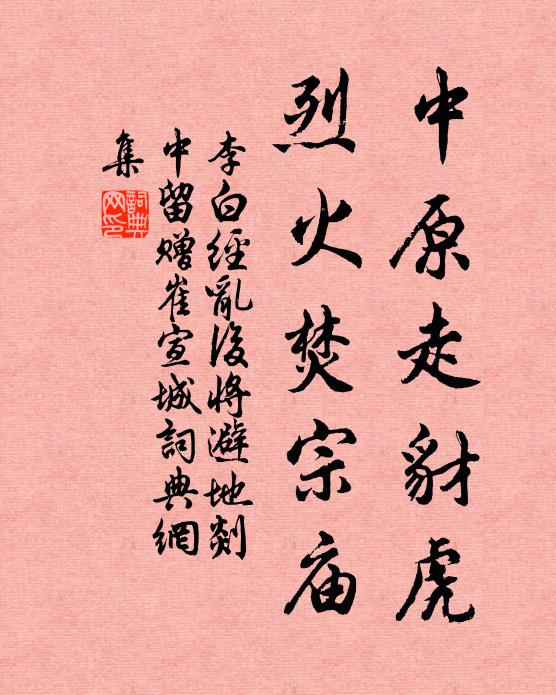 中原走豺虎
烈火焚宗庙
李白經亂後將避地剡
中留赠崔宣城詞典網
集
詞典
网印